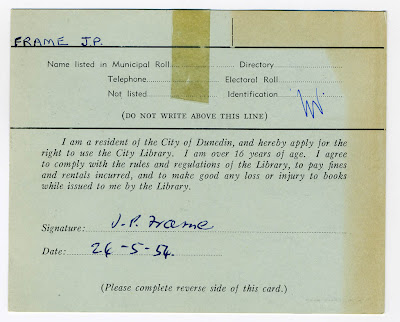 FRAME J.P.
Name listed in Municipal Roll Directory
Telephone Electoral Roll
Not listed Identification
(DO NOT WRITE ABOVE THIS LINE)
I am a resident of the City of Dunedin, and hereby apply for the
right to use the City Library. I am over 16 years of age. I agree
to comply with the rules and regulations of the Library, to pay fines
and rentals incurred, and to make good any loss or injury to books
while issued to me by the Library.
Signature: J. P. Frame
Date: 26-5-54.
(Please complete reverse side of this card.)